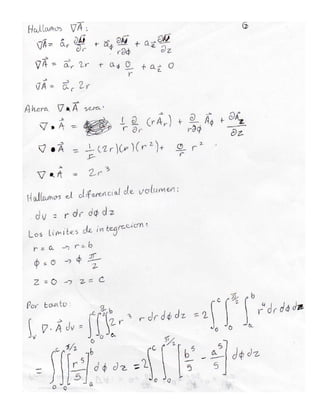 Hallamos ∇Ā:
∇Ā = âr ∂M/∂r + aφ ∂M/r∂φ + az ∂M/∂z
∇Ā = ar 2r + aφ 0/r + az 0
∇Ā = ar 2r
Ahora ∇•Ā sera:
∇•Ā = 1/r ∂/∂r (rAr) + ∂/r∂φ Aφ + ∂Az/∂z
∇•Ā = 1/r (2r)(r)(r²) + 0/r r²
∇•Ā = 2r³
Hallamos el diferencial de volumen:
dv = r dr dφ dz
Los limites de integracion:
r = a → r = b
φ = 0 → φ π/2
z = 0 → z = c
Por tanto
∫v ∇•Ā dv = ∫∫∫ 2r³ r dr dφ dz = 2 ∫₀^c ∫₀^π/2 ∫a^b r⁴ dr dφ dz
= ∫₀^c ∫₀^π/2 [r⁵/5]a^b dφ dz = 2 ∫₀^c ∫₀^π/2 [b⁵/5 - a⁵/5] dφ dz